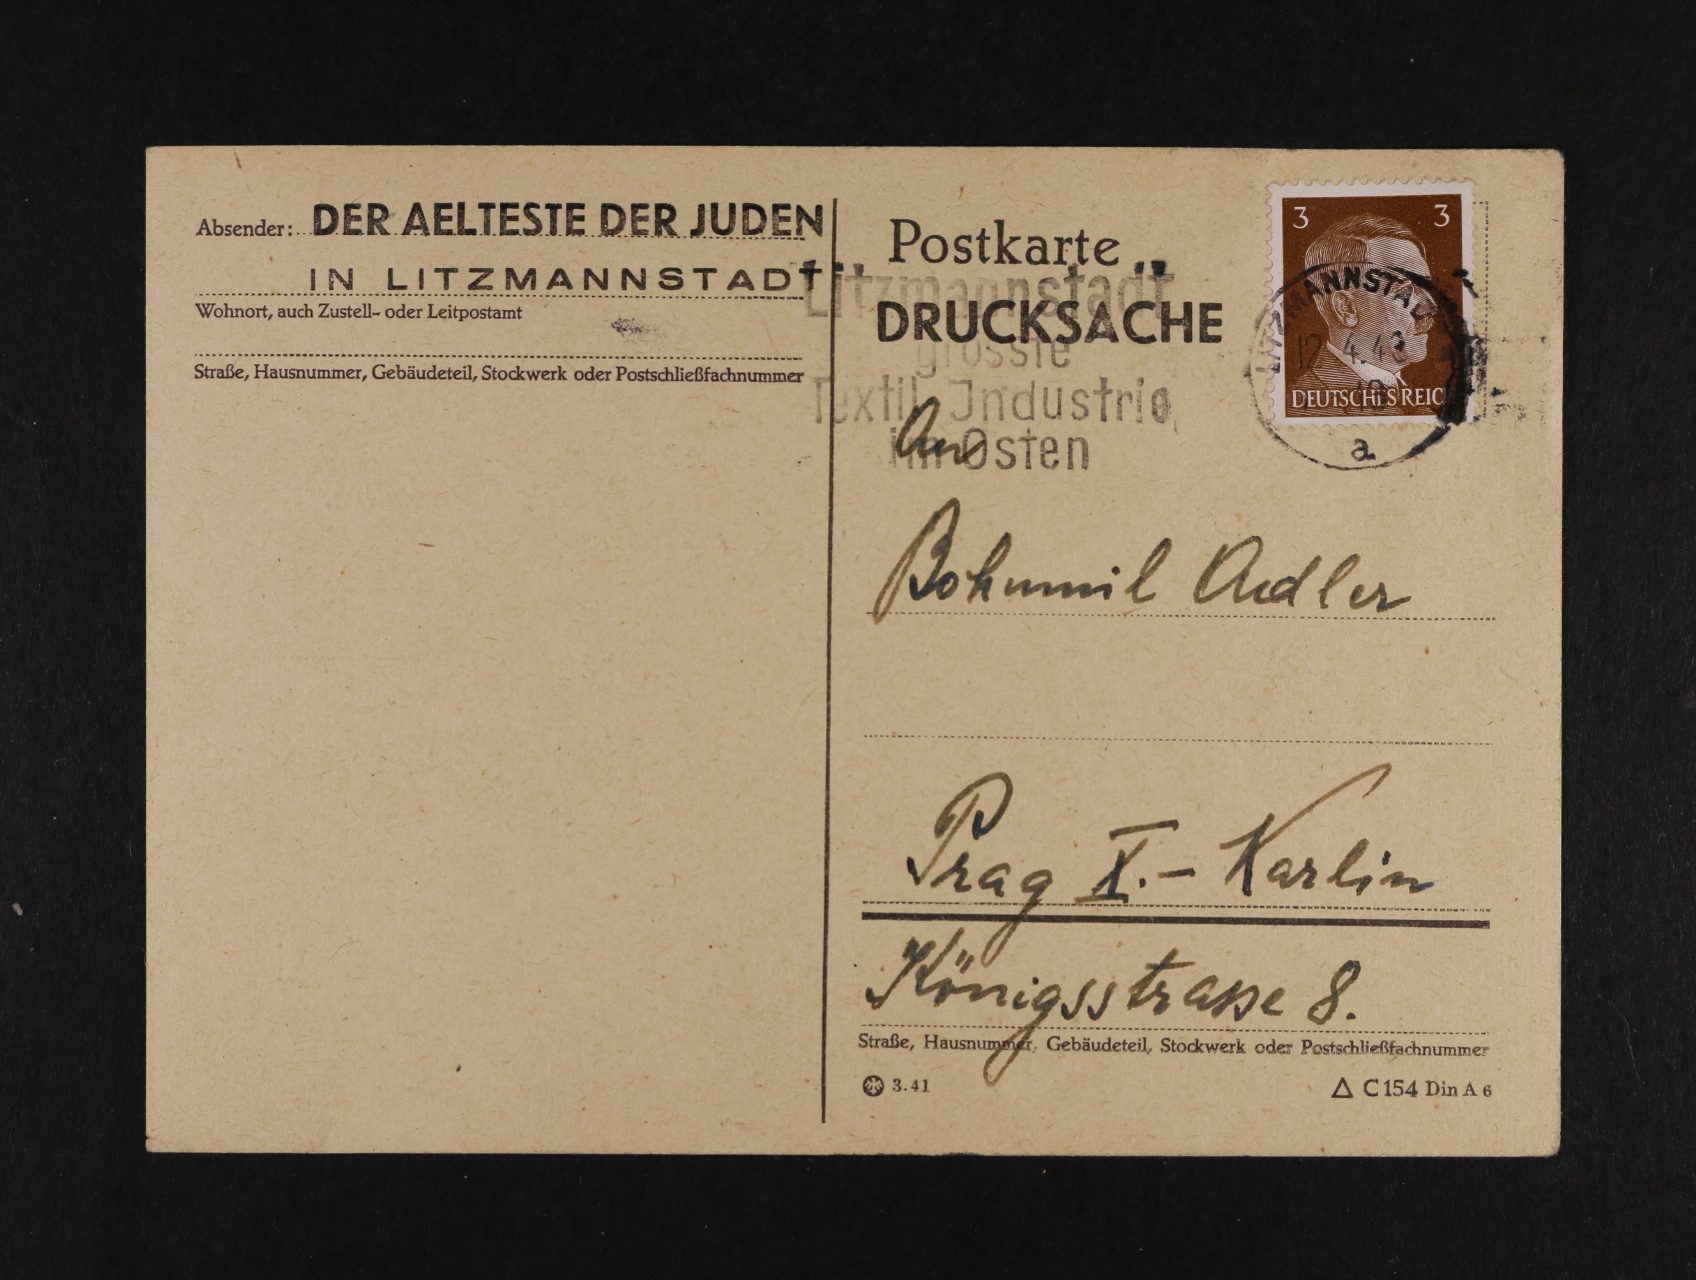 Absender: DER AELTESTE DER JUDEN
IN LITZMANNSTADT
Wohnort, auch Zustell- oder Leitpostamt
Straße, Hausnummer, Gebäudeteil, Stockwerk oder Postschließfachnummer
Postkarte
DRUCKSACHE
Litzmannstadt
grösste
Textil Industrie
im Osten
3 3
DEUTSCHES REICH
LITZMANNSTADT
12.4.43
a
An
Bohumil Adler
Prag X.- Karlin
Königsstrasse 8.
Straße, Hausnummer, Gebäudeteil, Stockwerk oder Postschließfachnummer
3.41
C 154 Din A 6